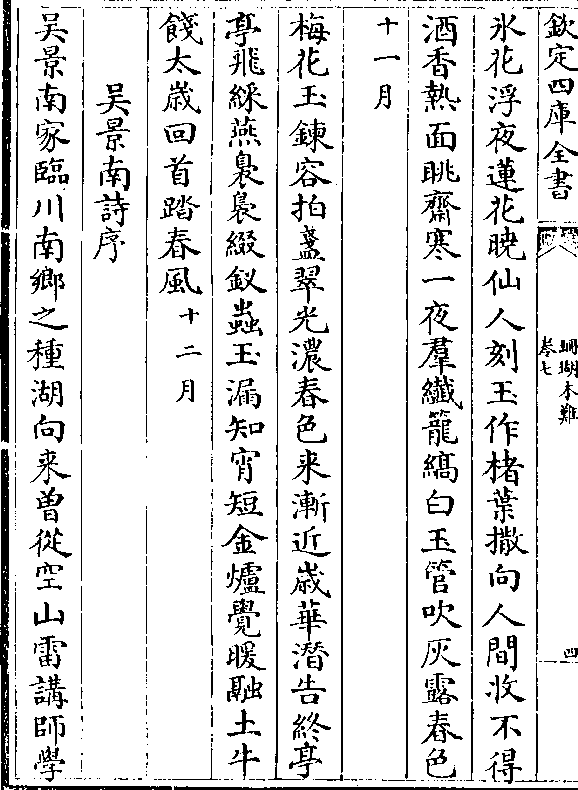 欽定四庫全書
珊瑚木難
卷七
四
氷花浮夜蓮花曉仙人刻玉作楮葉撒向人間收不得
酒香熱面眺齋寒一夜羣纖籠縞白玉管吹灰露春色
十一月
梅花玉鍊容拍盞翠光濃春色来漸近歲華潛告終亭
亭飛綵燕裊裊綴釵蟲玉漏知宵短金爐覺暖融土牛
餞太歲回首踏春風十二月
吴景南詩序
吴景南家臨川南鄉之種湖向来曾從空山雷講師學